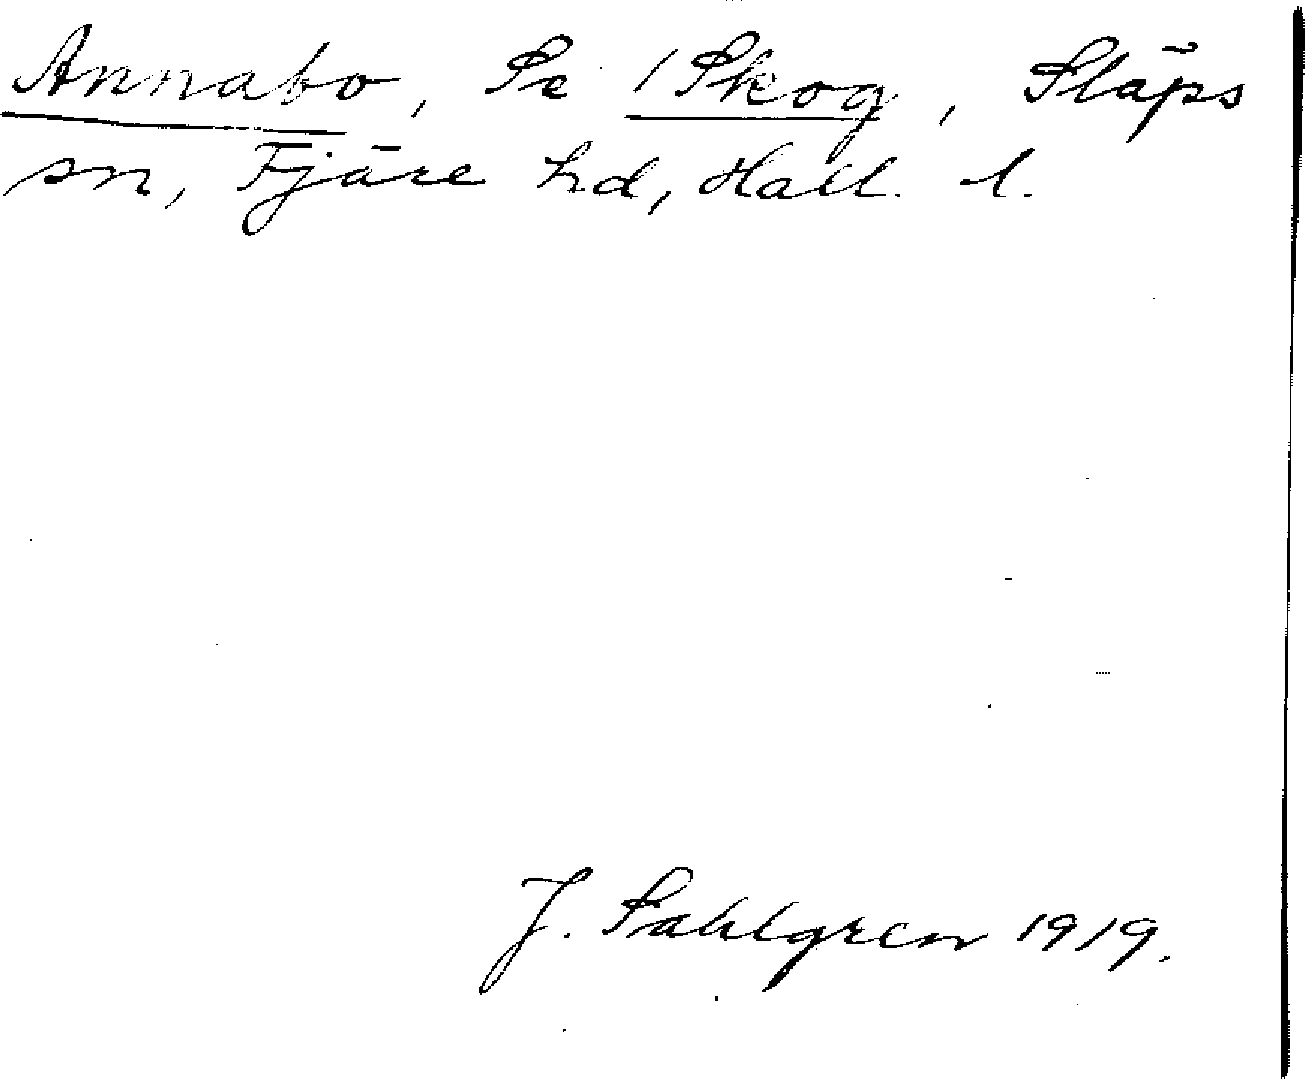 Annabo, Se 1 Skog, Släps
sn, Fjäre hd, Hall. l.
J. Sahlgren 1919.